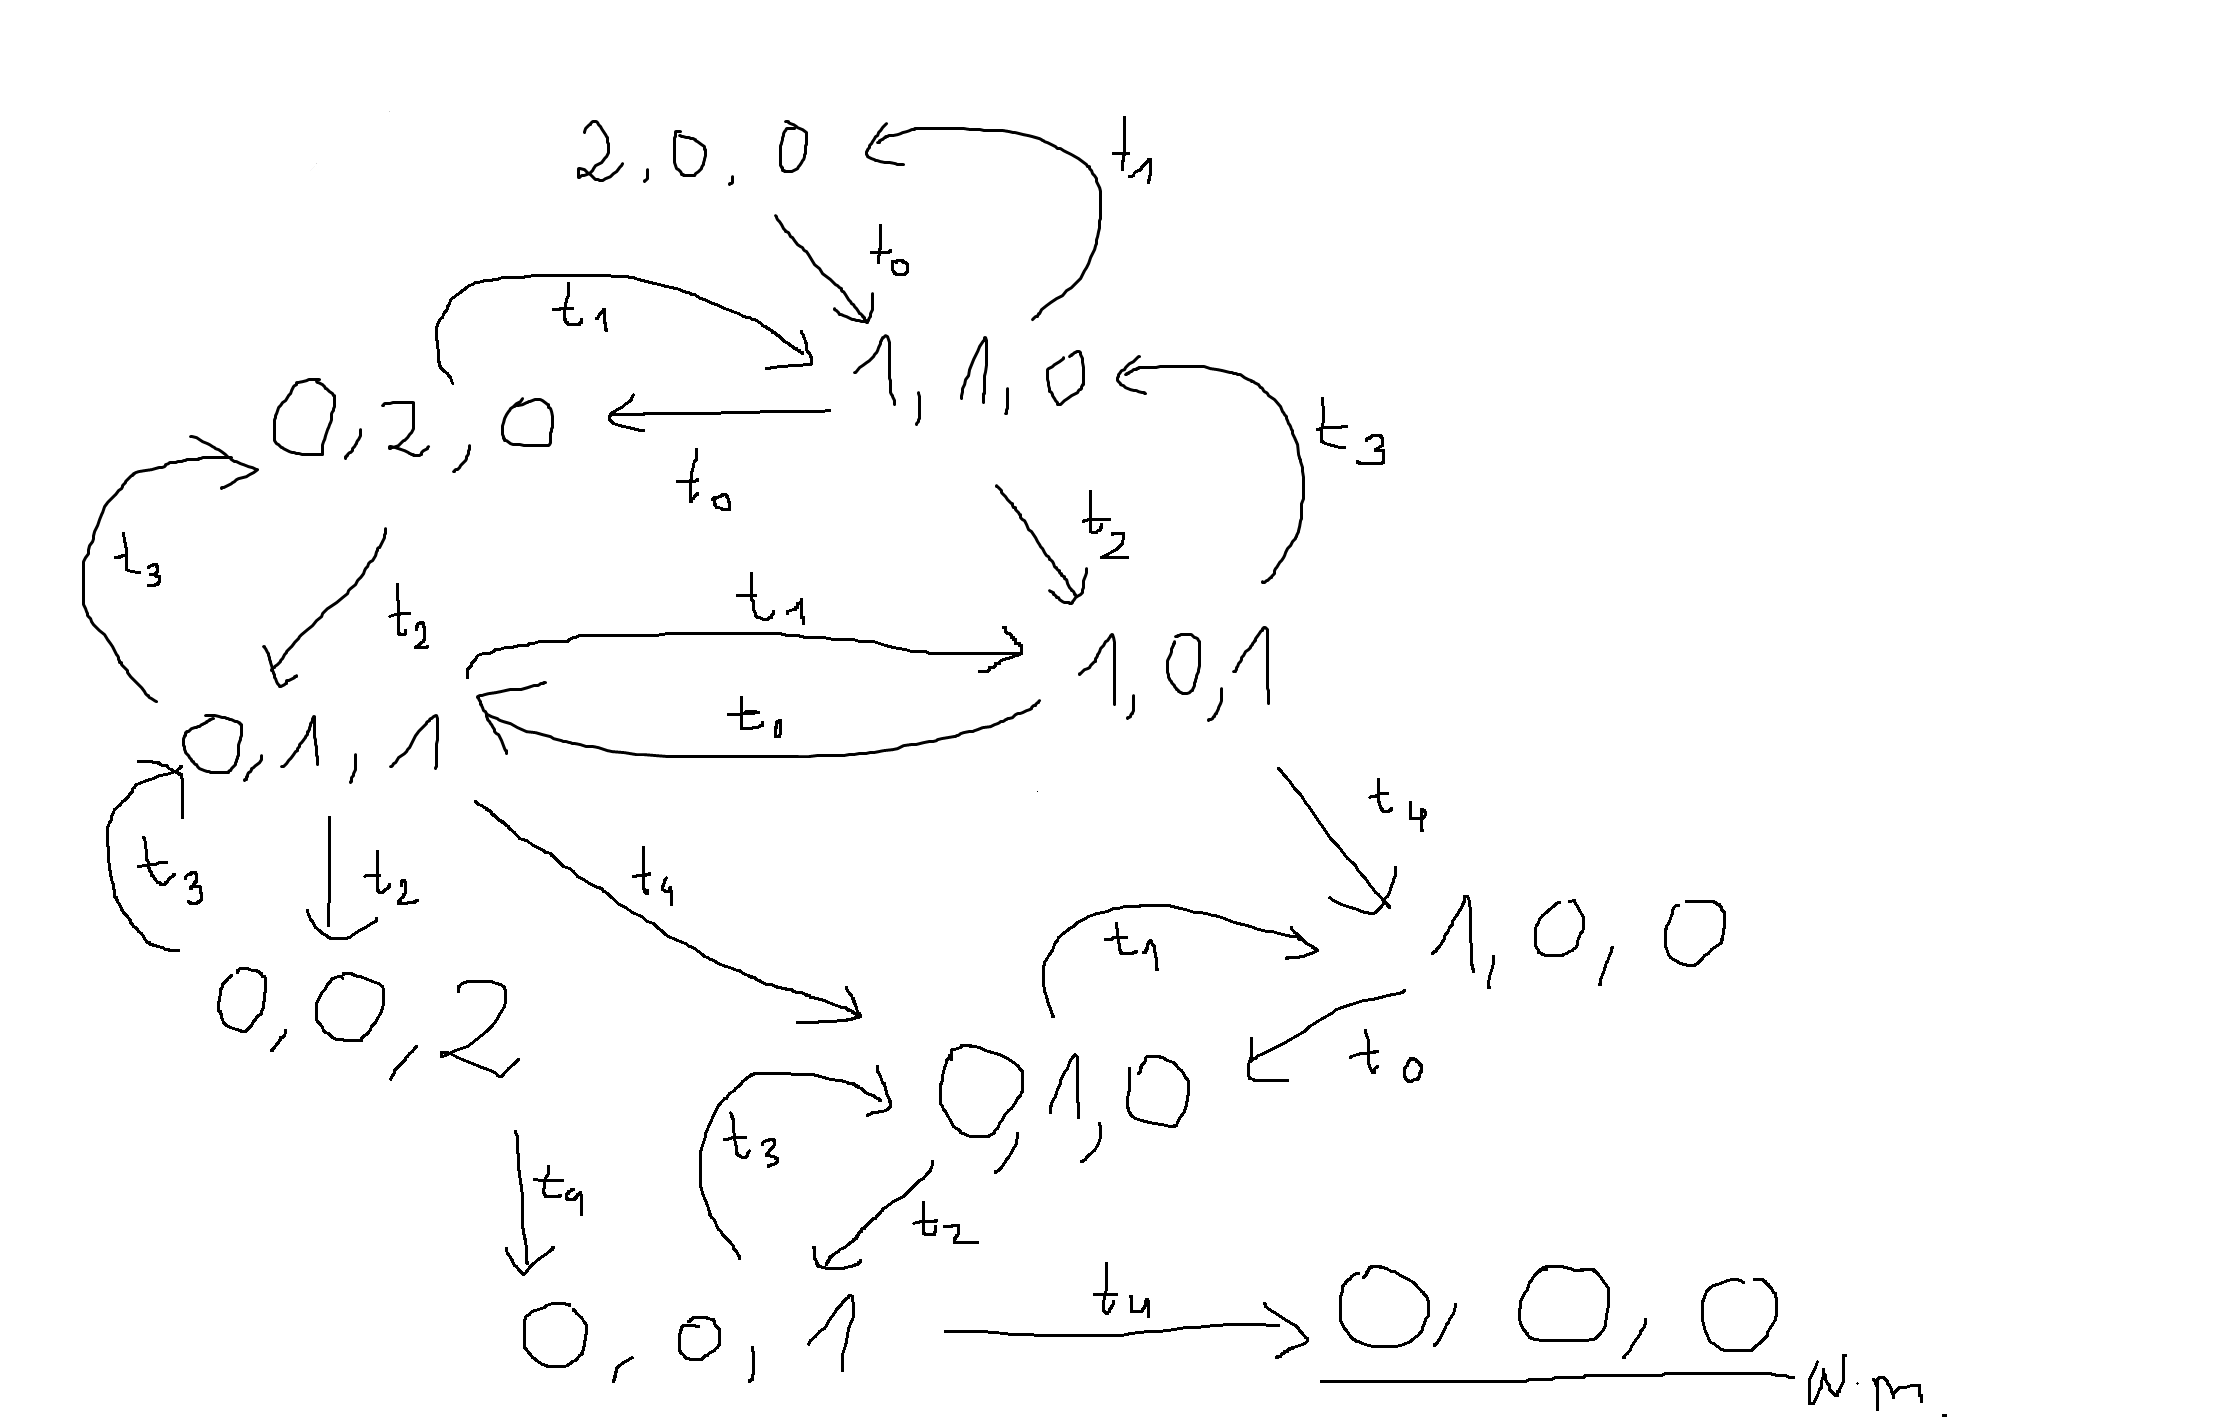 2, 0, 0
t1
t0
t1
1, 1, 0
0, 2, 0
t3
t0
t2
t3
t1
t2
1, 0, 1
t0
0, 1, 1
t4
t3
t2
t4
1, 0, 0
t1
0, 0, 2
t0
0, 1, 0
t3
t4
t2
t4
0, 0, 1
0, 0, 0